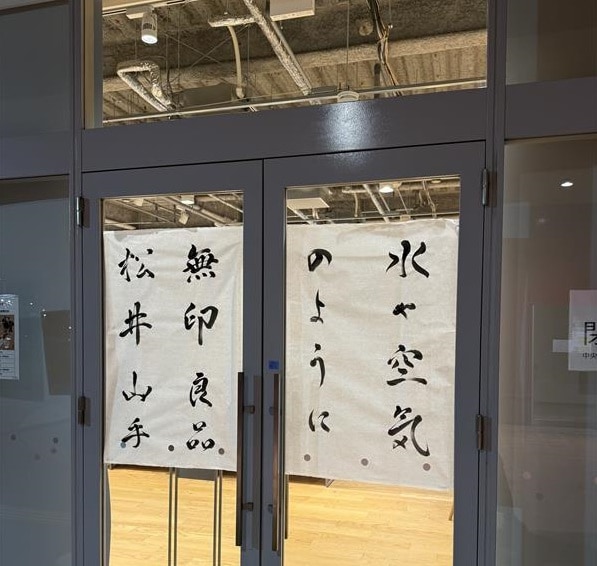 水や空気
のように
無印良品
松井山手
中央